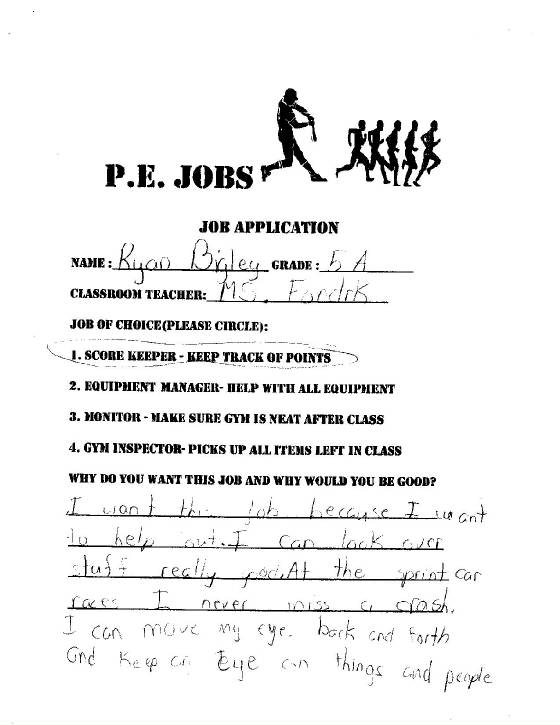 P.E. JOBS
JOB APPLICATION
NAME: Ryan Bigley GRADE: 5 A
CLASSROOM TEACHER: MS.
JOB OF CHOICE(PLEASE CIRCLE):
1. SCORE KEEPER - KEEP TRACK OF POINTS
2. EQUIPMENT MANAGER- HELP WITH ALL EQUIPMENT
3. MONITOR - MAKE SURE GYM IS NEAT AFTER CLASS
4. GYM INSPECTOR- PICKS UP ALL ITEMS LEFT IN CLASS
WHY DO YOU WANT THIS JOB AND WHY WOULD YOU BE GOOD?
I want this job because I want
to help out. I can look over
stuff really good. At the sprint car
races I never miss a crash.
I can move my eye. back and forth
and keep an Eye on things and people